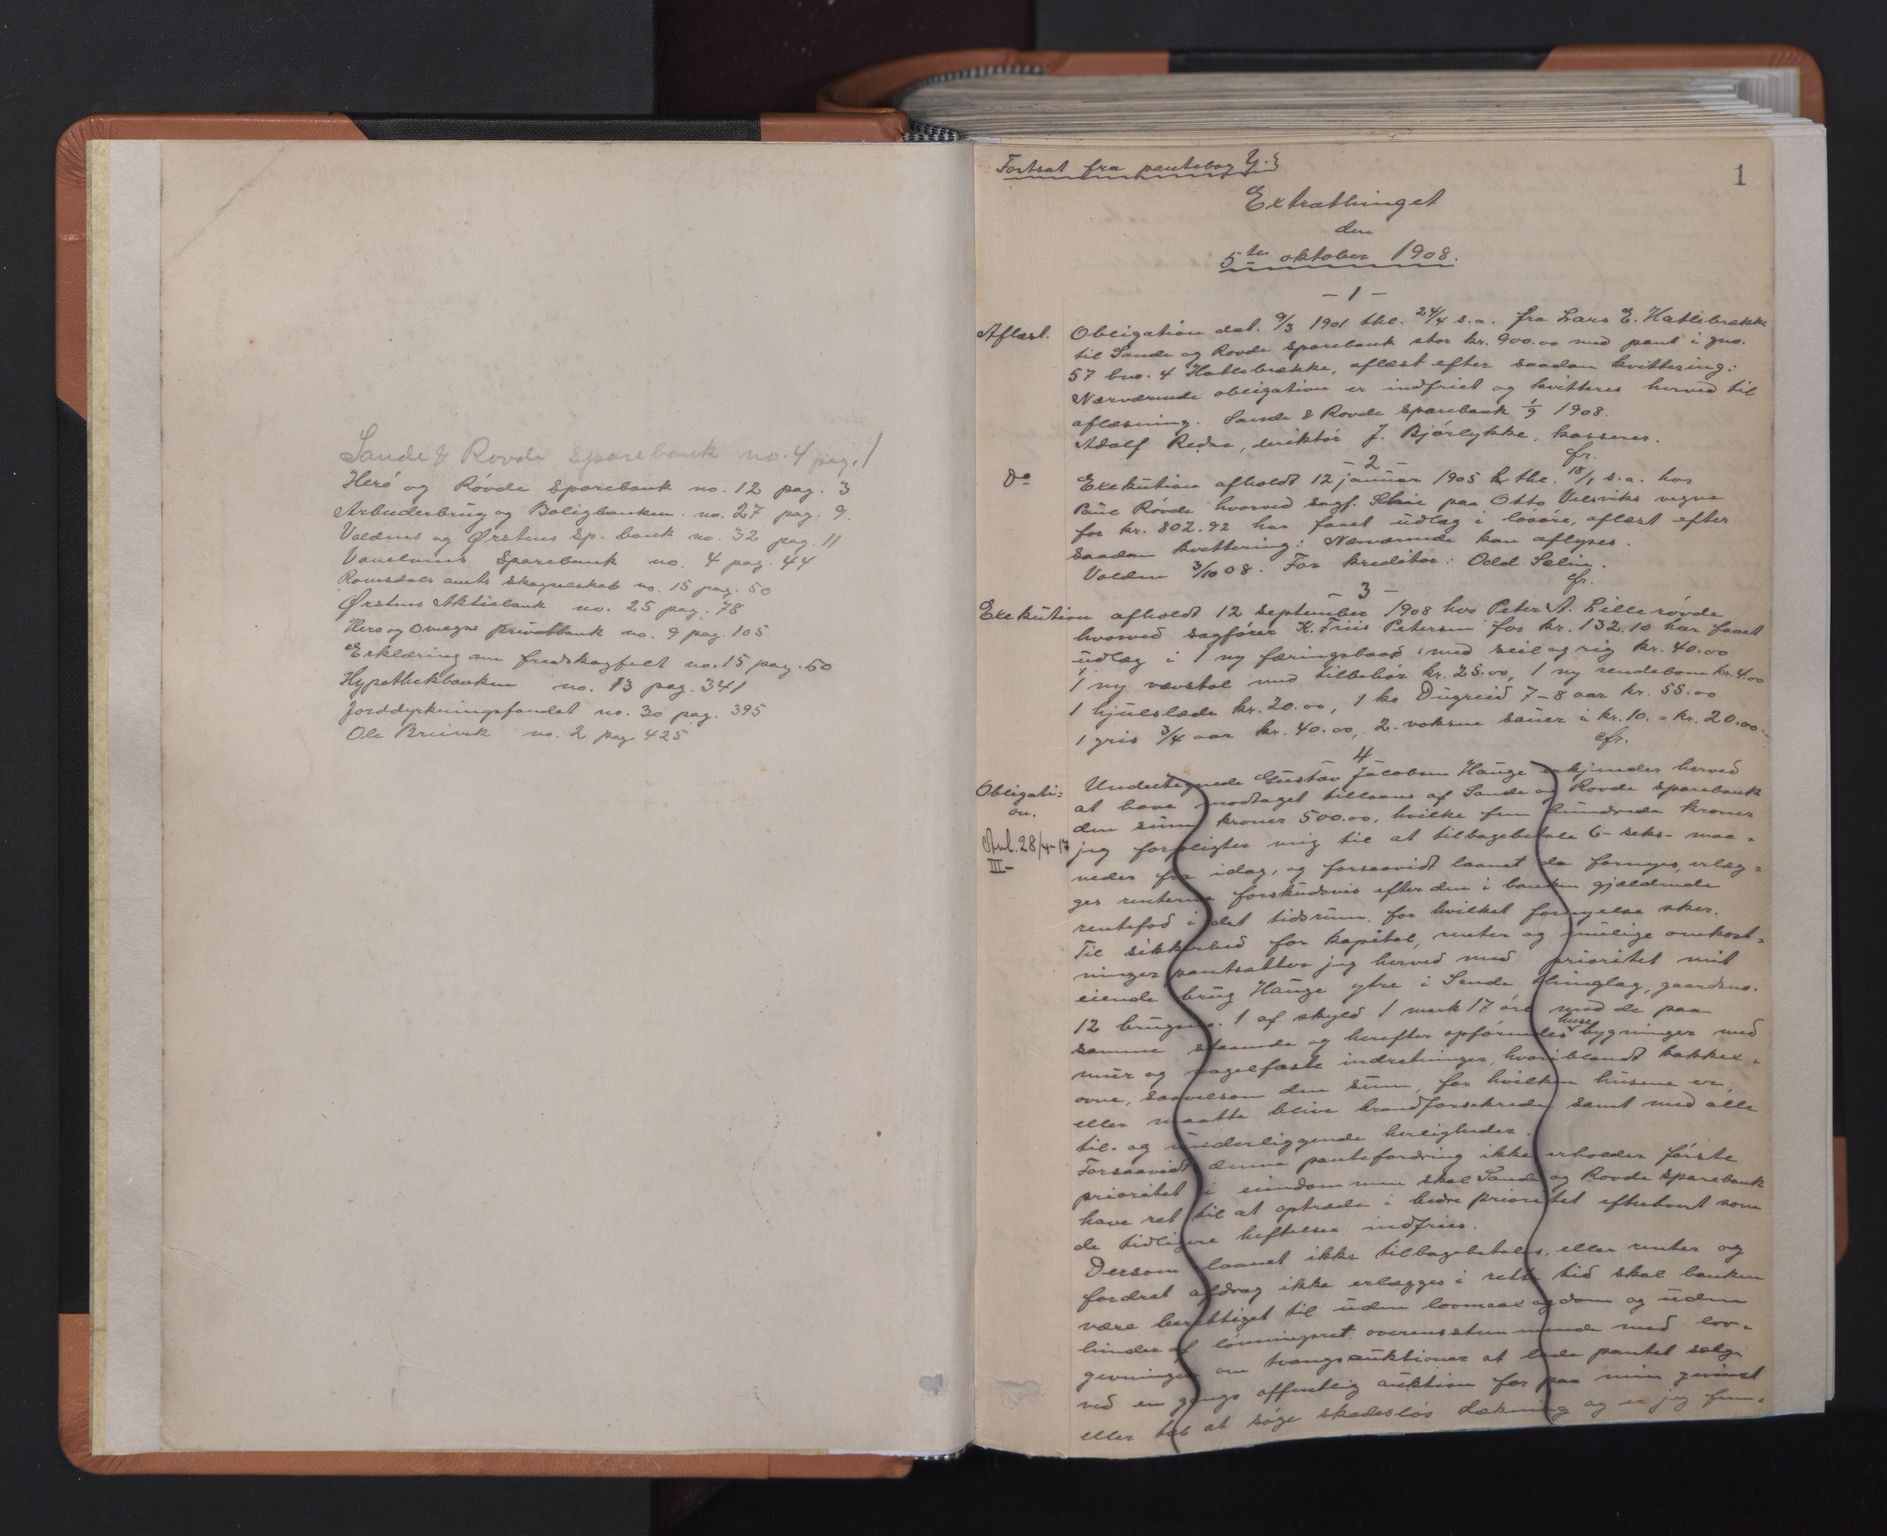 Sande & Rovde Sparebank no. 4 pag. 1
Herö og Røvde Sparebank no. 12 pag. 3
Arbuderbrug og Boligbanken no. 27 pag. 9.
Voldens og Ørstens Sp. bank no. 32 pag. 11
Vanelvens Sparebank no. 4 pag. 44
Romsdals amts skogselskab no. 15 pag. 50
Ørstens Aktiebank no. 25 pag. 78
Herö og Omegns privatbank no. 9 pag. 105
Erklæring om fredskogfelt no. 15 pag. 50
Hypothekbanken no. 13 pag. 341
Jorddyrkningsfondet no. 30 pag. 395
Ole Brüvik no. 2 pag 425
Fortsat fra pantebog
1
Extrathinget
den
5te oktober 1908.
- 1 -
Aflæst. Obligation dat. 9/3 1901 thl. 24/4 s.a. fra Lars E. Hatlebrække
til Sande og Rovde Sparebank stor kr. 900.00 med pant i gno.
57 bno. 4 Hatlebrække, aflæst efter saadan kvittering:
Nærværende obligation er indfriet og kvitteres herved til
aflæsning. Sande & Rovde Sparebank 1/9 1908.
Adolf Redse, direktør J. Bjørlykke, kasserer.
cfr.
- 2 -
Do Exekution afholdt 12 januar 1905 thl. 18/1 s.a. hos
Paul Røvde hvorved sagf. paa Otto Velsviks vegne
for kr. 802.92 har faaet udlæg i løsøre, aflæst efter
saadan kvittering: Nærværende kan aflyses.
Volden 3/10 08. For kreditor: Odd Selin.
cfr.
- 3 -
Exekution afholdt 12 september 1908 hos Peter A. Lillerøvde
hvorved sagfører K. Friis Petersen for kr. 132.10 har faaet
udlæg i 1 ny færingsbaad med seil og rig kr. 40.00
1 ny vævstol med tilbehør kr. 25.00, 1 ny rendebom kr. 4.00
1 hjulslæde kr. 20.00, 1 ko Dugreid 7-8 aar kr. 55.00
1 gris 3/4 aar kr. 40.00, 2 voksne sauer à kr. 10. = kr. 20.00
cfr.
4
Obligati- Undertegnede Gustav Jacobsen Hauge erkjender herved
on. at have modtaget tillaans af Sande og Rovde Sparebank
den sum kroner 500.00, hvilke fem hundrede kroner
Anl. 28/4-17 jeg forpligter mig til at tilbagebetale 6- seks- maa-
III- neder fra idag, og forsaavidt laanet da fornyes, erlæg-
ges renterne forskudsvis efter den i banken gjældende
rentefod i det tidsrum, for hvilket fornyelse sker.
Til sikkerhed for kapital, renter og mulige omkost-
ninger pantsætter jeg herved med prioritet mit
eiende brug Hauge ytre i Sande thinglag, gaardsno.
12 brugsno. 1 af skyld 1 mark 17 øre med de paa
samme staaende og herefter opførendes huse bygninger med
mur og nagelfaste indretninger, hvoriblandt kakkel-
ovne, saavelsom den sum, for hvilken husene er,
eller maatte blive brandforsikrede samt med alle
til- og underliggende herligheder.
Forsaavidt denne pantefordring ikke erholder første
prioritet i eiendommen skal Sande og Rovde Sparebank
have ret til at optræde i bedre prioritet efterhvert som
de tidligere heftelser indfries.
Dersom laanet ikke tilbagebetales, eller renter og
fordret afdrag ikke erlægges i rette tid skal banken
være berettiget til uden lovmaal og dom og uden
hinder af løsningsret overensstemmende med lov-
givningen om tvangsauktioner at lade pantet sælge
ved en gangs offentlig auktion for paa min gevinst
eller tab at søge skadesløs dækning og er jeg fun-